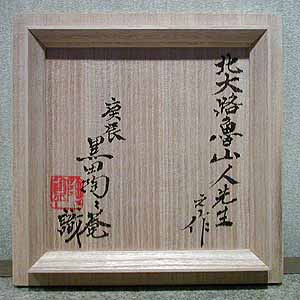 北大路魯山人先生
之作
庚辰
黒田陶々菴
識